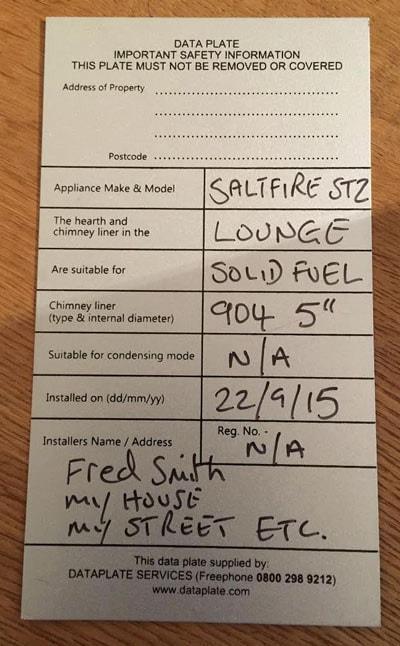 DATA PLATE
IMPORTANT SAFETY INFORMATION
THIS PLATE MUST NOT BE REMOVED OR COVERED
Address of Property ........................................
........................................
........................................
Postcode ........................................
Appliance Make & Model SALTFIRE ST2
The hearth and
chimney liner in the LOUNGE
Are suitable for SOLID FUEL
Chimney liner
(type & internal diameter) 904 5"
Suitable for condensing mode N/A
Installed on (dd/mm/yy) 22/9/15
Installers Name / Address Reg. No. - N/A
Fred Smith
my HOUSE
my STREET ETC.
This data plate supplied by:
DATAPLATE SERVICES (Freephone 0800 298 9212)
www.dataplate.com